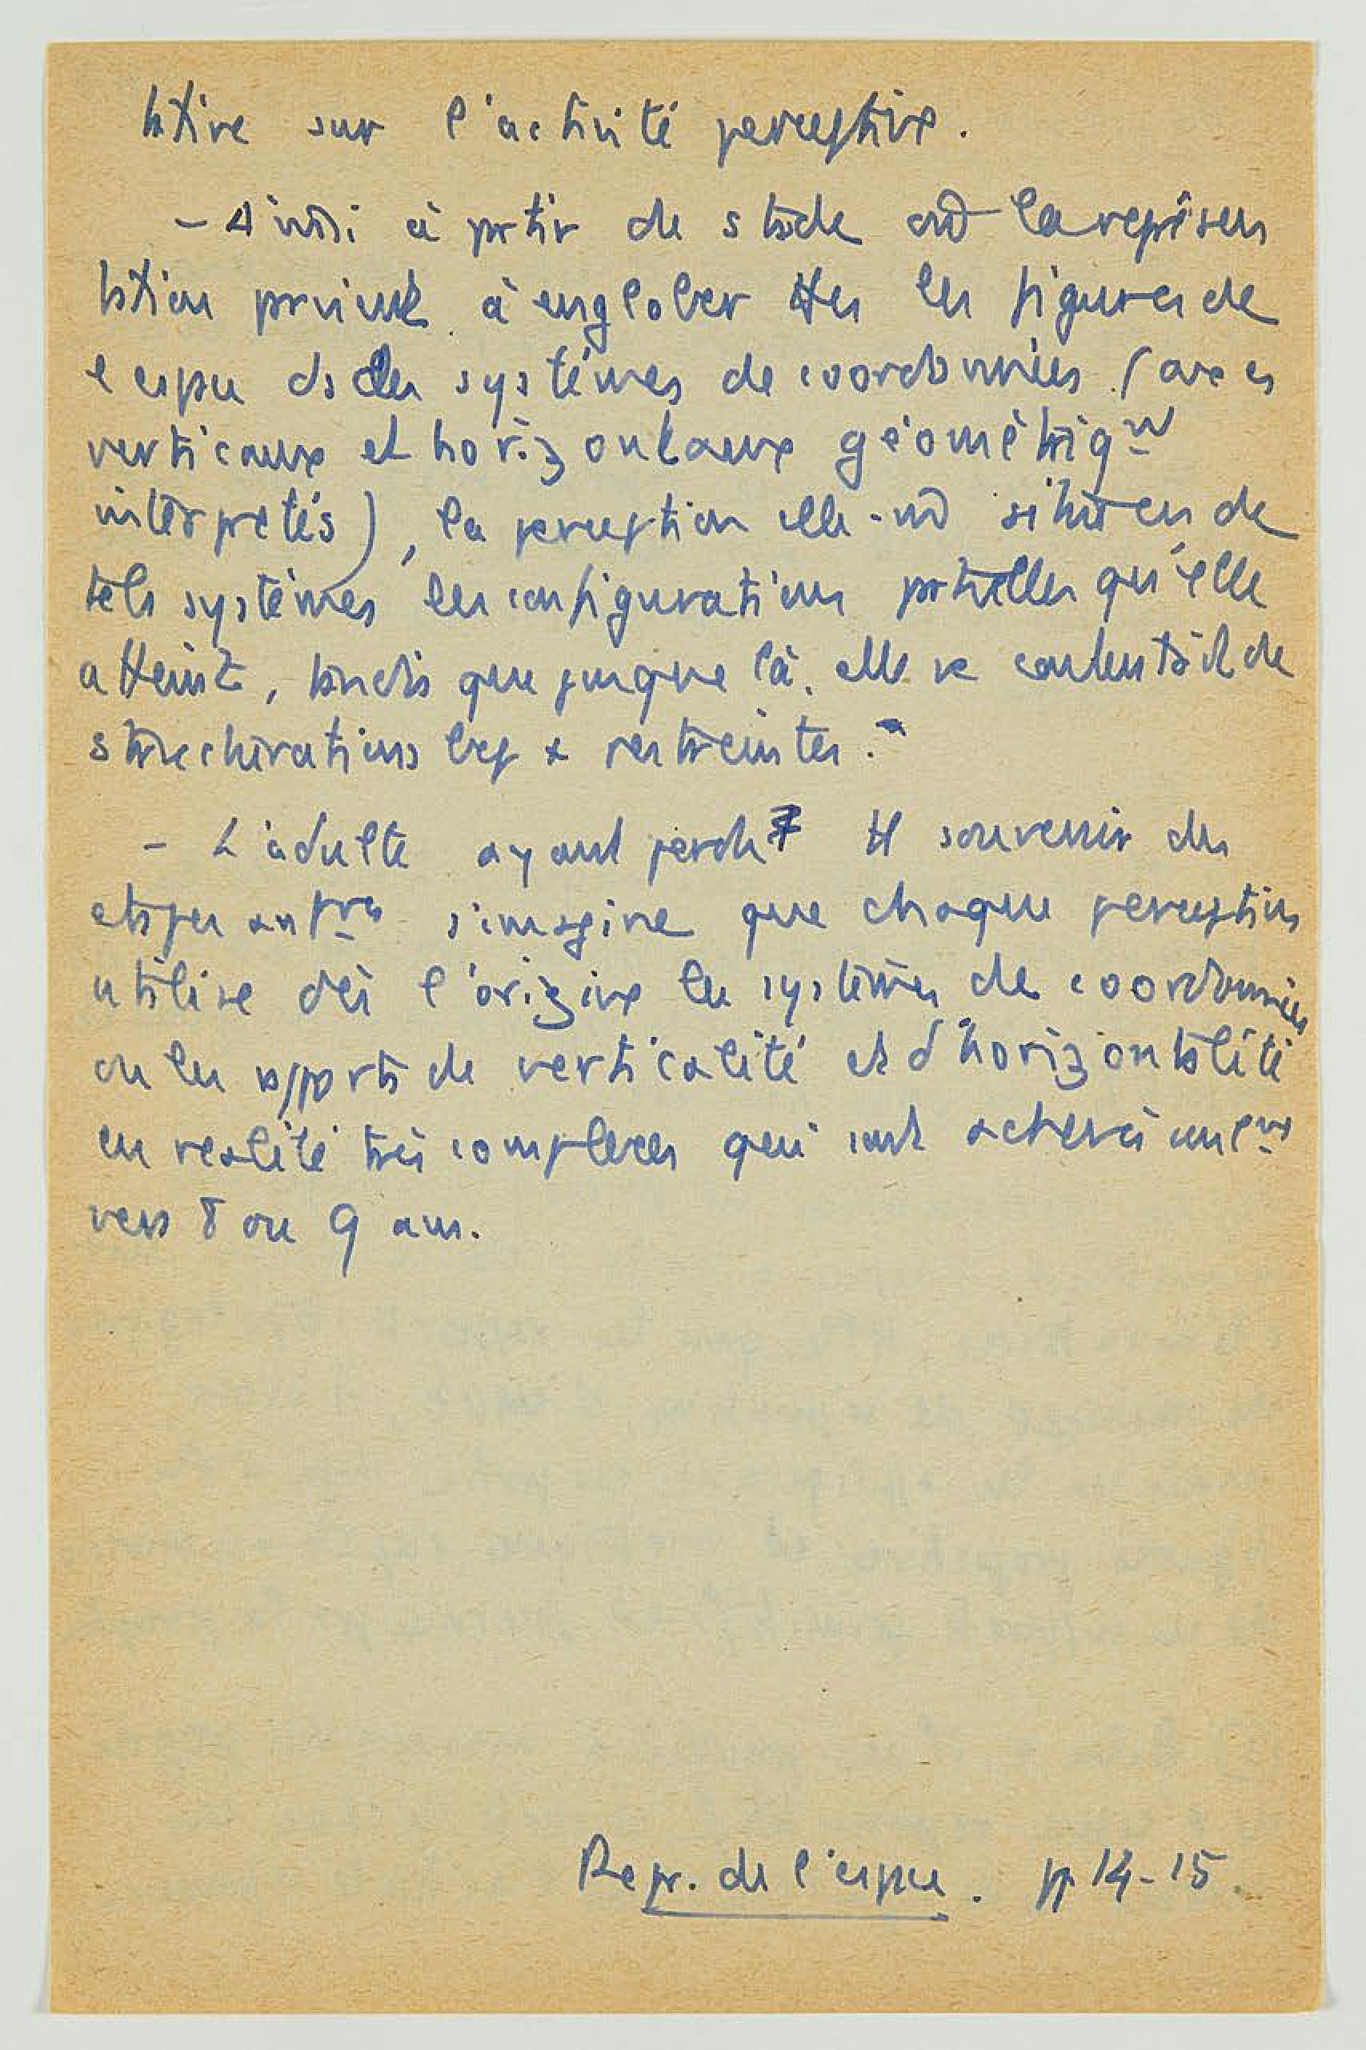 tative sur l'activité perceptive.
– Ainsi à partir du stade où la représen
tation parvient à englober ttes les figures de
l'espace ds des systèmes de coordonnées (axes
verticaux et horizontaux géométriqt
interprétés), la perception elle-m̂ situe en de
tels systèmes les configurations partielles qu'elle
atteint, tandis que jusque là, elle se contentait de
structurations bcp + restreintes."
– L'adulte ayant perdu tt souvenir des
étapes antres s'imagine que chaque perception
utilise dès l'origine les systèmes de coordonnées
ou les rapports de verticalité et d'horizontalité
en réalité très complexes qui sont achevés
vers 8 ou 9 ans.
Repr. de l'espace. pp 14-15.